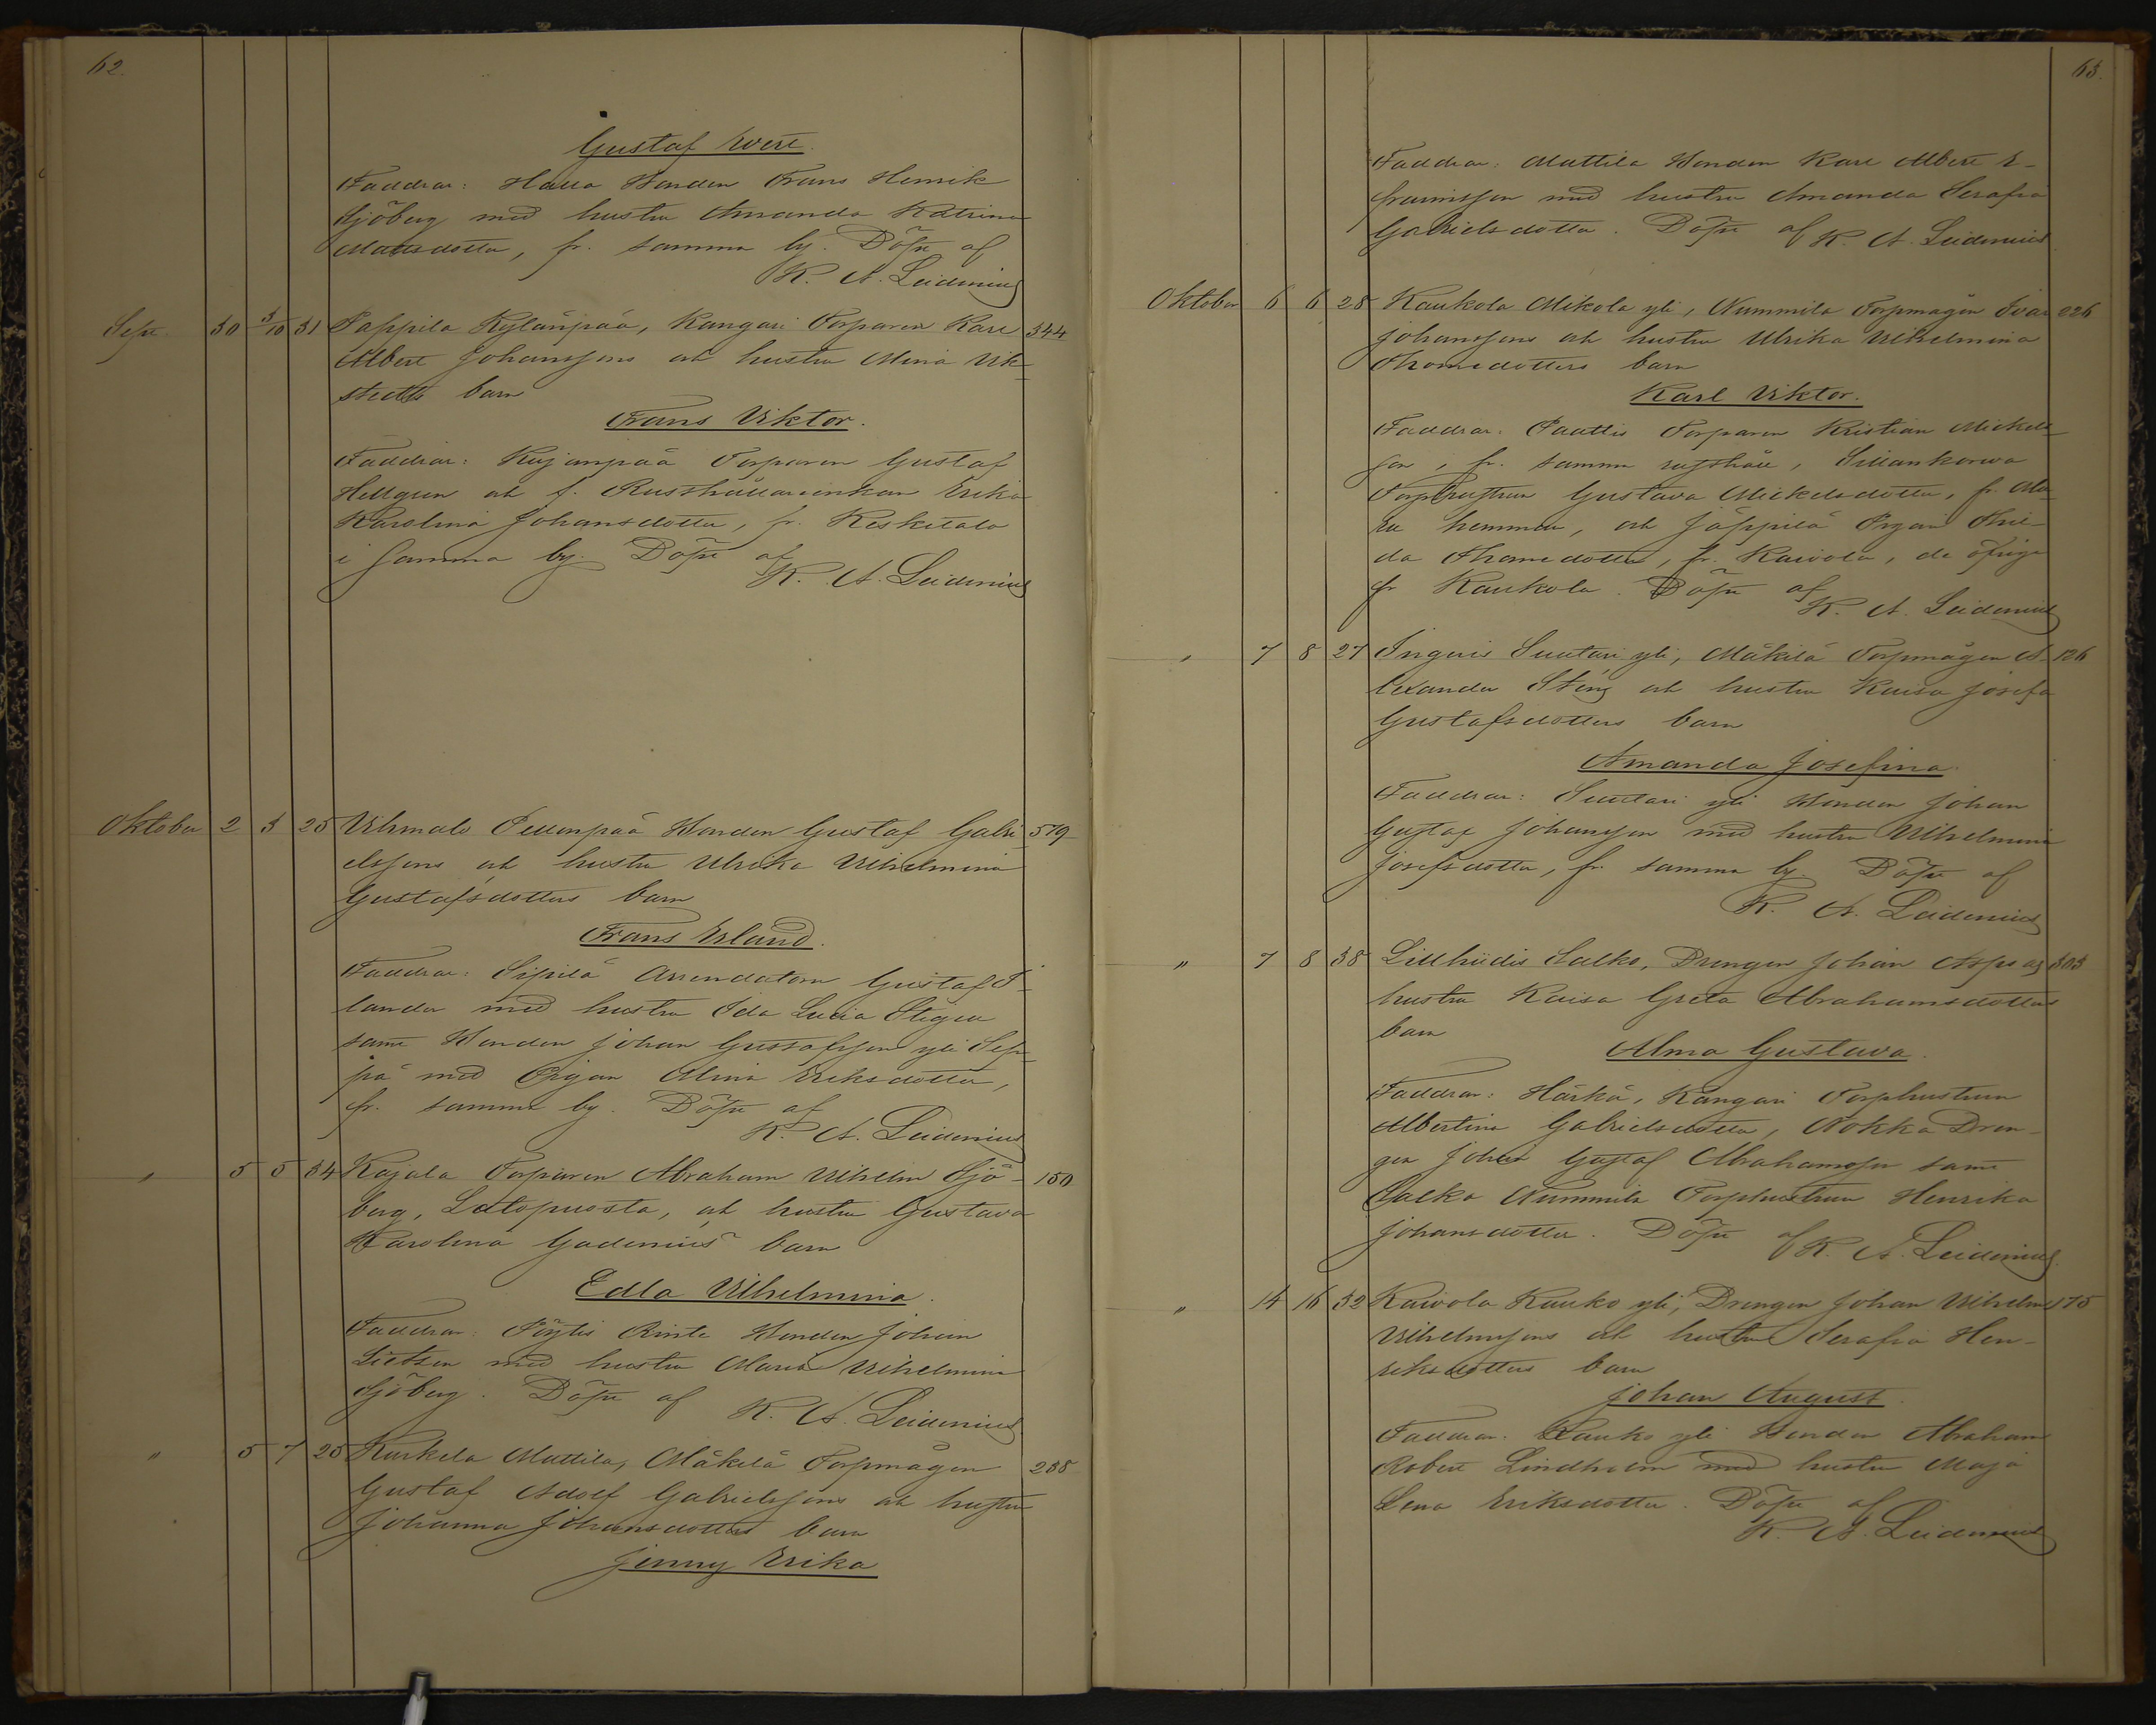 62.
Gustaf Evert.
Faddrar: Halla Bonden Frans Henrik
Sjöberg med hustru Amanda Katrina
Matsdotter, fr. samma by. Döpt af
K. A. Leidenius
Sept. 30 3/10 31 Pappila Kylänpää, Kangari Torparen Karl 344
Albert Johanssons och hustru Mina Vik-
stedts barn
Frans Viktor.
Faddrar: Kujanpää Torparen Gustaf
Hellgren och f. Rusthållarenkan Erika
Karolina Johansdotter, fr. Keskitalo
i samma by. Döpt af
K. A. Leidenius
Oktober 2 3 25 Vihmalo Pellonpää Bonden Gustaf Gabri- 579
elssons och hustru Ulrika Vilhelmina
Gustafsdotters barn
Frans Erland.
Faddrar: Sipilä Arrendatorn Gustaf
lander med hustru Ida Lucia Stigell
samt Bonden Johan Gustafsson yli Sep-
pä med Pigan Alina Eriksdotter,
fr. samma by. Döpt af
K. A. Leidenius
" 5 5 34 Kajala Torparen Abraham Vilhelm Sjö- 150
berg, Latopuosta, och hustru Gustava
Karolina Gadenius' barn
Edla Vilhelmina.
Faddrar: Pöytis Rinta Bonden Johan
Lietzen med hustru Maria Vilhelmina
Sjöberg. Döpt af
K. A. Leidenius
" 5 7 25 Kurkela Mattila, Mäkelä Torpmågen
Gustaf Adolf Gabrielssons och hustru
Johanna Johansdotters barn
Jenny Erika
63.
Faddrar: Mattila Bonden Karl Albert E-
fraimsson med hustru Amanda Serafia
Gabrielsdotter. Döpt af K. A. Leidenius
Oktober 6 6 28 Kaukola Mikola yli, Nummila Torpmågen Ivar 226
Johanssons och hustru Ulrika Vilhelmina
Thomedotters barn
Karl Viktor.
Faddrar: Paattis Torparen Kristian Mickels-
son, fr. samma rusthåll, Sillankorwa
Torphustrun Gustava Mickelsdotter, fr.
hemman, och Jäppilä Pigan Hil-
da Thomedotter, fr. Kaivola, de öfriga
fr. Kaukola. Döpt af
K. A. Leidenius
" 7 8 27 Ingeris Suutari yli, Mäkilä Torpmågen A- 126
lexander Stens och hustru Kaisa Josefa
Gustafsdotters barn
Amanda Josefina
Faddrar: Suutari yli Bonden Johan
Gustaf Johansson med hustru Vilhelmina
Josefsdotter, fr. samma by. Döpt af
K. A. Leidenius
" 7 8 38 Lillhiidis Salko, Drengen Johan
hustru Kaisa Greta Abrahamsdotters
barn
Alma Gustava.
Faddrar: Härkä, Kangari Torphustrun
Albertina Gabrielsdotter, Nokka Dren-
gen Johan Gustaf Abrahamsson samt
Salko Nummila Torphustrun Henrika
Johansdotter. Döpt af K. A. Leidenius.
" 14 16 32 Kaivola Kauko yli, Drengen Johan Vilhelm 175
Vilhelmssons och hustru Serafia Hen-
riksdotters barn
Johan August.
Faddrar: Kauko yli Bonden Abraham
Robert Lindholm med hustru Maja
Lena Eriksdotter. Döpt af
K. A. Leidenius